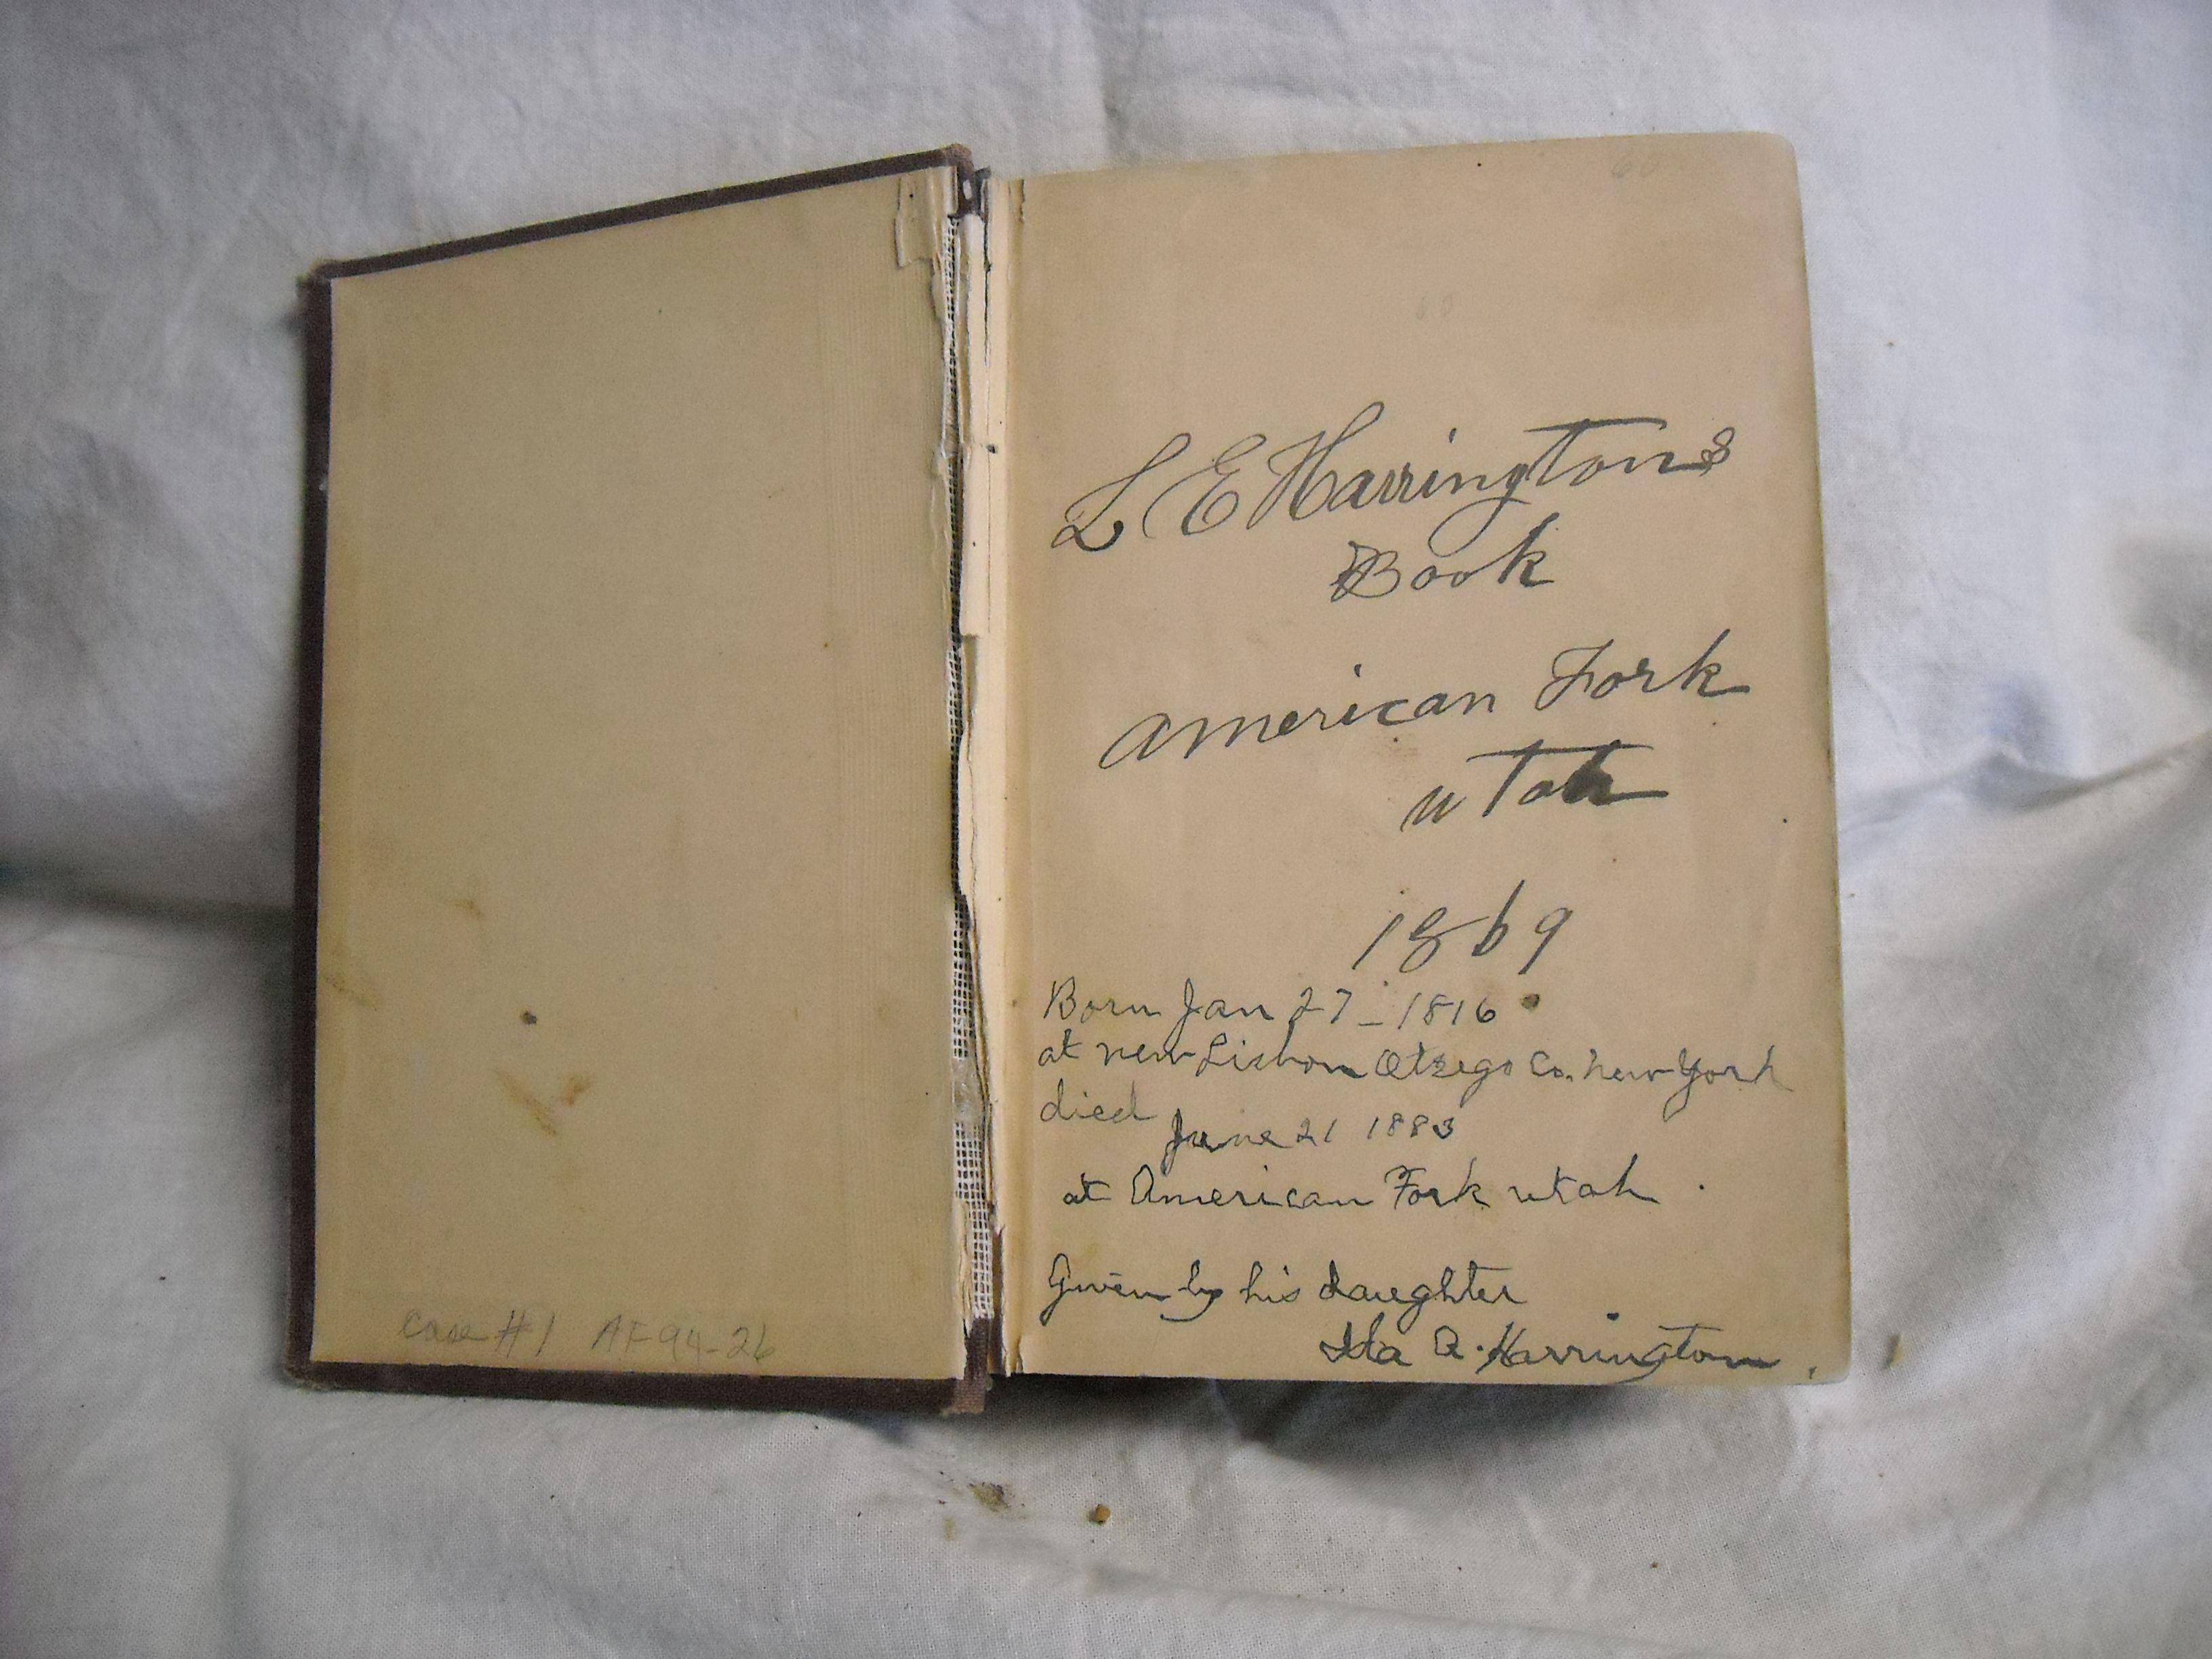 Case #1 AF 94-26
L E Harringtons
Book
american Fork
utah
1869
Born Jan 27 - 1816
at new Lisbon Otsego Co. New York
died
June 21 1883
at American Fork utah.
Given by his daughter
Ida A. Harrington.